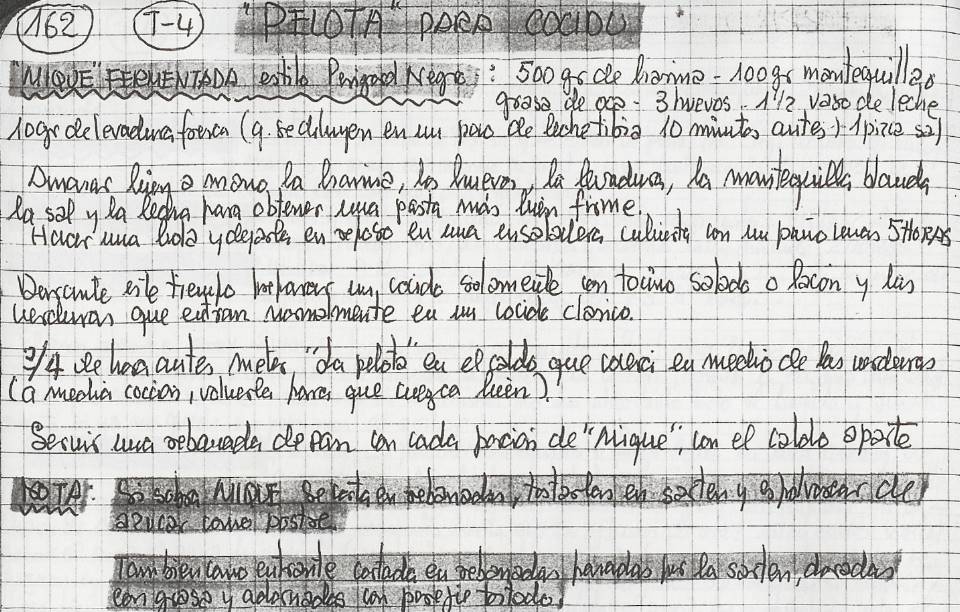 162 T-4 "PELOTA" PARA COCIDO
"MIQUE" FERMENTADA estilo Perigord Negro: 500 grs de harina - 100 grs mantequilla o
grasa de oca - 3 huevos - 1 1/2 vaso de leche
10 grs de levadura fresca (q. se diluyen en un poco de leche tibia 10 minutos antes) - 1 pizca sal
Amasar bien a mano, la harina, los huevos, la levadura, la mantequilla blanda
la sal y la leche para obtener una pasta más bien firme.
Hacer una bola y dejarla en reposo en una ensaladera cubierta con un paño unas 5 HORAS
Durante este tiempo preparar un cocido solamente con tocino salado o lacon y las
verduras que entran normalmente en un cocido clasico.
3/4 de hora antes meter "la pelota" en el caldo que cocerá en medio de las verduras
(a media coccion, volverla para que cuezca bien).
Servir una rebanada de pan con cada porcion de "Mique", con el caldo aparte
NOTA: Si sobra MIQUE se corta en rebanadas, tostarlas en sarten y espolvorear de
azucar como postre
Tambien como entrante cortada en rebanadas, pasadas por la sarten, doradas
con grasa y adornadas con tostado.